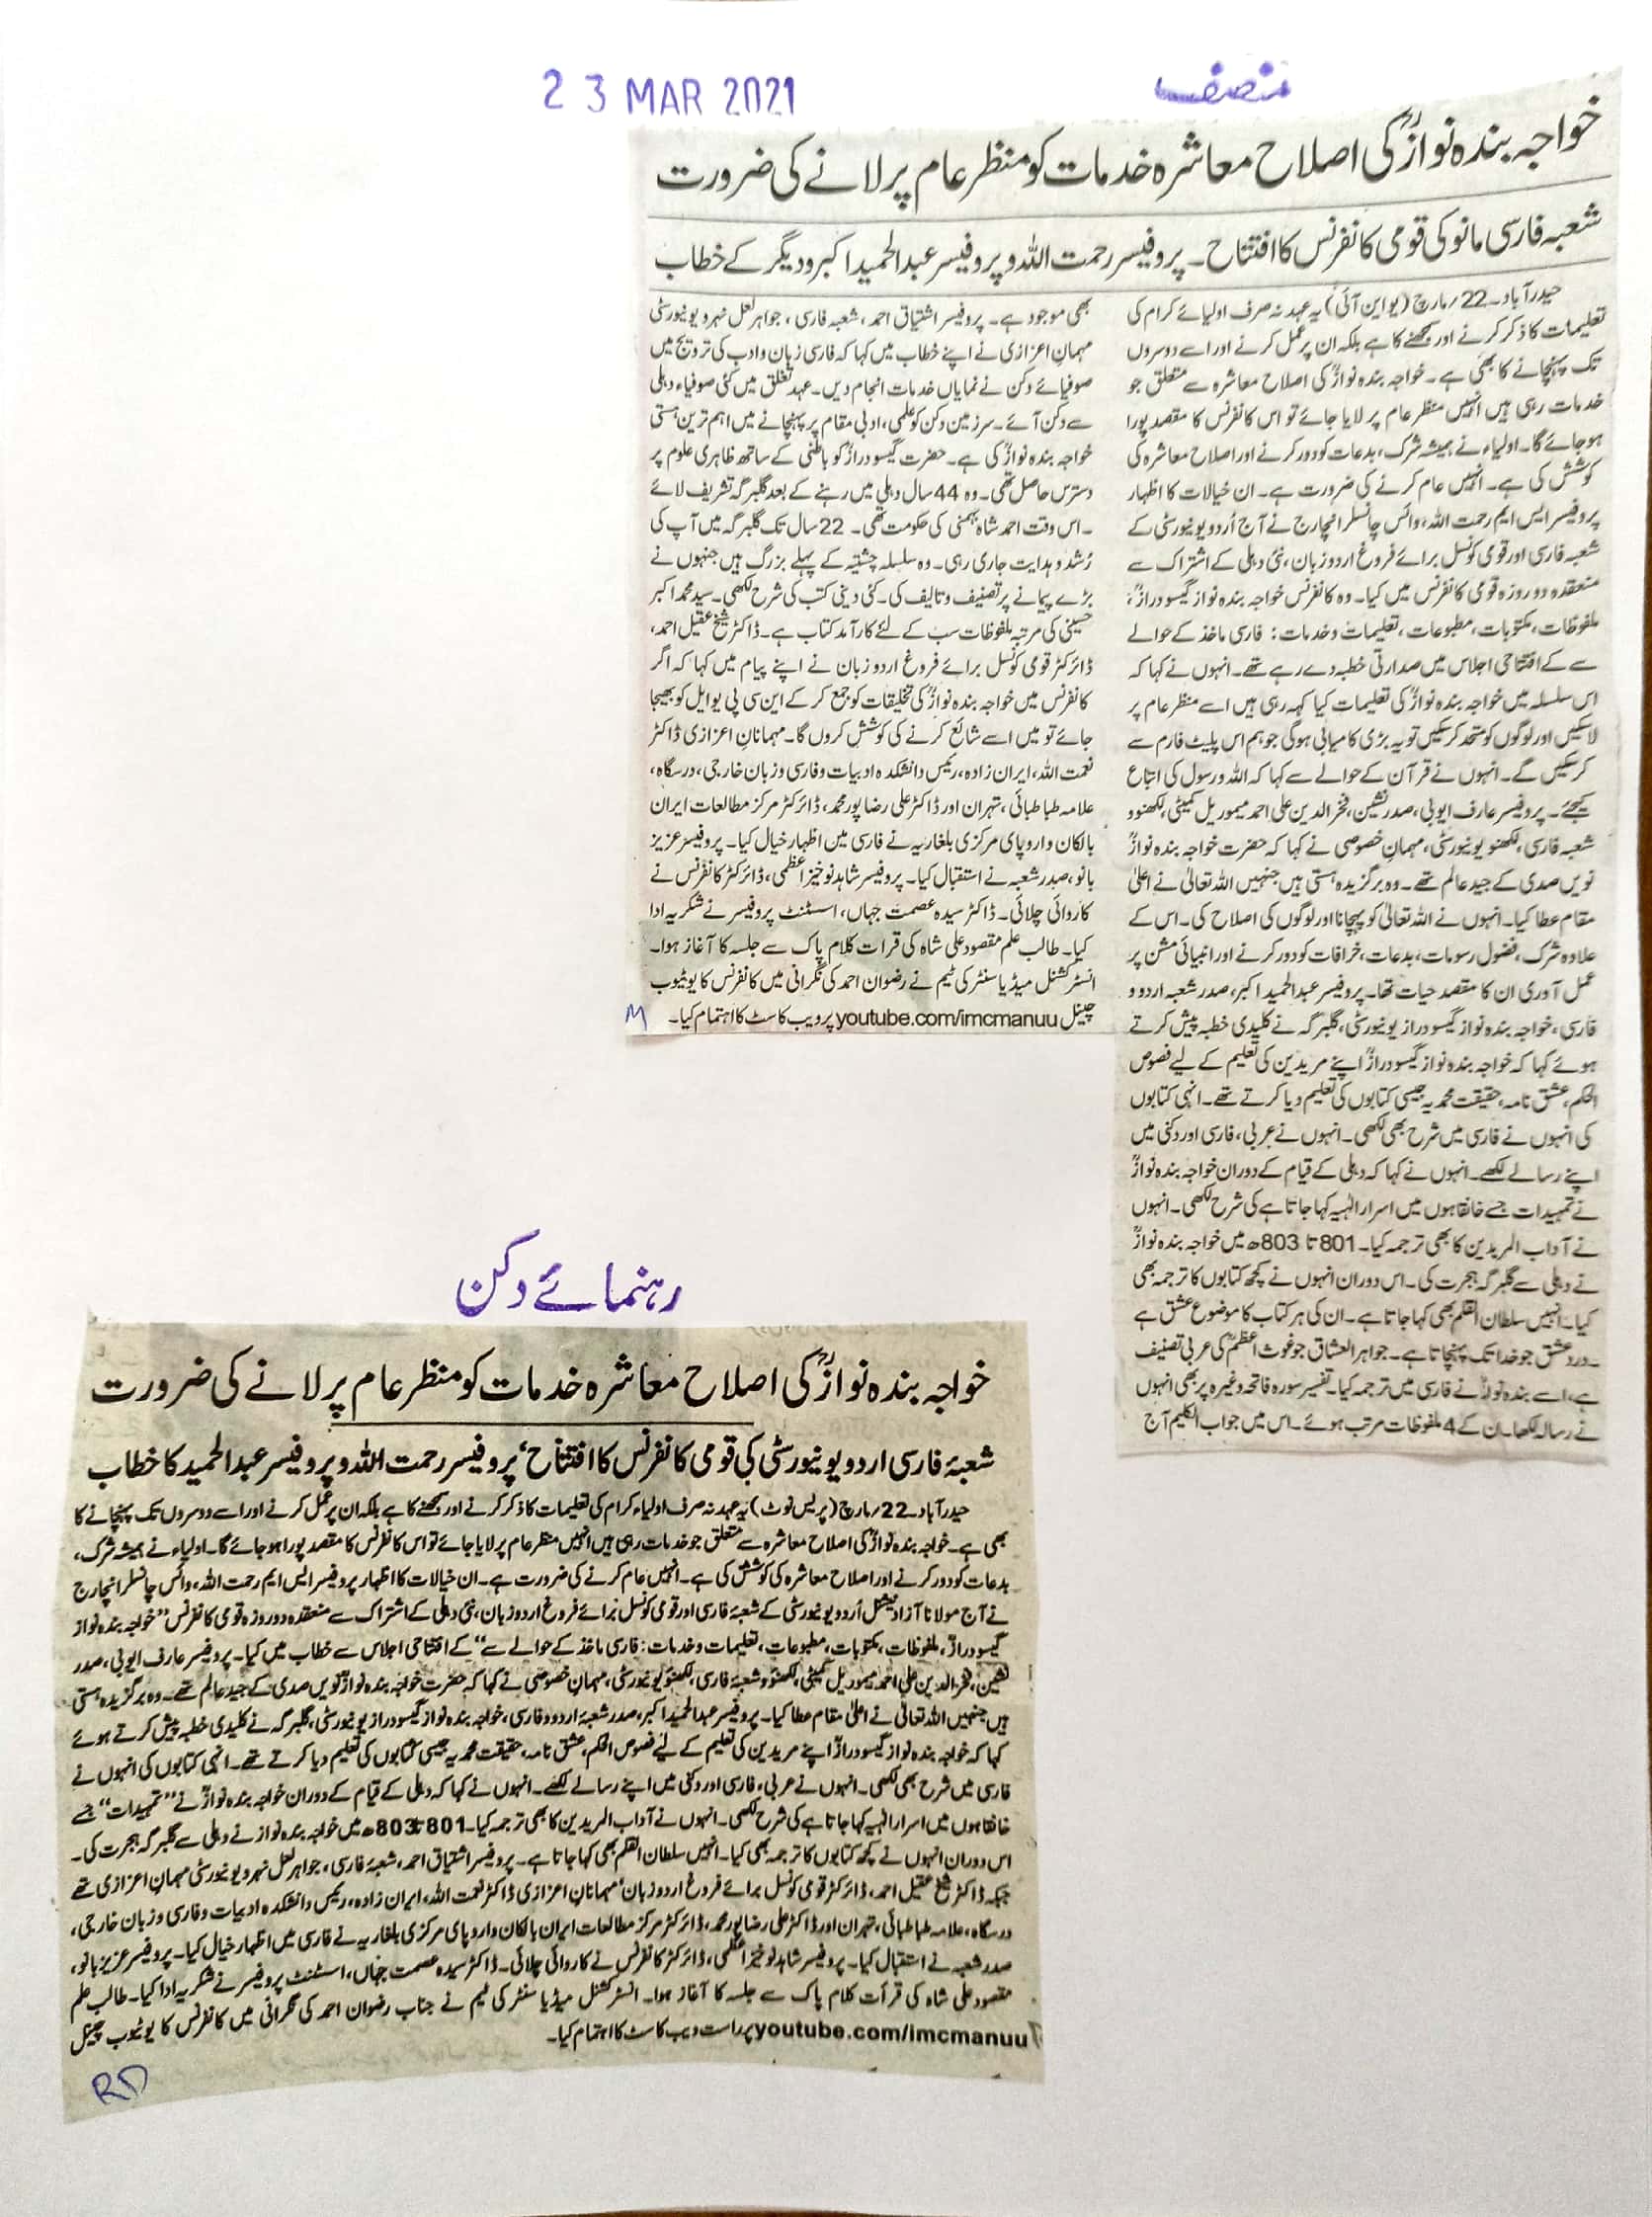 23 MAR 2021
منصف
خواجہ بندہ نوازؒ کی اصلاح معاشرہ خدمات کو منظر عام پر لانے کی ضرورت
شعبہ فارسی مانو کی قومی کانفرنس کا افتتاح۔ پروفیسر رحمت اللہ و پروفیسر عبدالحمید اکبر و دیگر کے خطاب
حیدرآباد۔ 22/مارچ (یو این آئی) یہ عہد نہ صرف اولیائے کرام کی
تعلیمات کا ذکر کرنے اور سمجھنے کا ہے بلکہ ان پر عمل کرنے اور اسے دوسروں
تک پہنچانے کا بھی ہے۔ خواجہ بندہ نوازؒ کی اصلاح معاشرہ سے متعلق جو
خدمات رہی ہیں انہیں منظر عام پر لایا جائے تو اس کانفرنس کا مقصد پورا
ہوجائے گا۔ اولیاء نے ہمیشہ شرک، بدعات کو دور کرنے اور اصلاح معاشرہ کی
کوشش کی ہے۔ انہیں عام کرنے کی ضرورت ہے۔ ان خیالات کا اظہار
پروفیسر ایس ایم رحمت اللہ، وائس چانسلر انچارج نے آج اُردو یونیورسٹی کے
شعبہ فارسی اور قومی کونسل برائے فروغ اردو زبان، نئی دہلی کے اشتراک سے
منعقدہ دو روزہ قومی کانفرنس میں کیا۔ وہ کانفرنس خواجہ بندہ نواز گیسودرازؒ،
ملفوظات، مکتوبات، مطبوعات، تعلیمات وخدمات: فارسی ماخذ کے حوالے
سے کے افتتاحی اجلاس میں صدارتی خطبہ دے رہے تھے۔ انہوں نے کہا کہ
اس سلسلہ میں خواجہ بندہ نوازؒ کی تعلیمات کیا کہہ رہی ہیں اسے منظر عام پر
لاسکیں اور لوگوں کو متحد کرسکیں تو یہ بڑی کامیابی ہوگی جو ہم اس پلیٹ فارم سے
کرسکیں گے۔ انہوں نے قرآن کے حوالے سے کہا کہ اللہ و رسول کی اتباع
کیجئے۔ پروفیسر عارف ایوبی، صدر نشین، فخر الدین علی احمد میموریل کمیٹی، لکھنو و
شعبہ فارسی، لکھنو یونیورسٹی، مہمان خصوصی نے کہا کہ حضرت خواجہ بندہ نوازؒ
نویں صدی کے جید عالم تھے۔ وہ برگزیدہ ہستی ہیں جنہیں اللہ تعالیٰ نے اعلیٰ
مقام عطا کیا۔ انہوں نے اللہ تعالیٰ کو پہچانا اور لوگوں کی اصلاح کی۔ اس کے
علاوہ شرک، فضول رسومات، بدعات، خرافات کو دور کرنے اور انبیائی مشن پر
عمل آوری ان کا مقصد حیات تھا۔ پروفیسر عبدالحمید اکبر، صدر شعبہ اردو و
فارسی، خواجہ بندہ نواز گیسودراز یونیورسٹی، گلبرگہ نے کلیدی خطبہ پیش کرتے
ہوئے کہا کہ خواجہ بندہ نواز گیسودرازؒ اپنے مریدین کی تعلیم کے لیے فصوص
الحکم، عشق نامہ، حقیقت محمدیہ جیسی کتابوں کی تعلیم دیا کرتے تھے۔ انہی کتابوں
کی انہوں نے فارسی میں شرح بھی لکھی۔ انہوں نے عربی، فارسی اور دکنی میں
اپنے رسالے لکھے۔ انہوں نے کہا کہ دہلی کے قیام کے دوران خواجہ بندہ نوازؒ
نے تمہیدات جسے خانقاہوں میں اسرار الٰہیہ کہا جاتا ہے کی شرح لکھی۔ انہوں
نے آداب المریدین کا بھی ترجمہ کیا۔ 801 تا 803ھ میں خواجہ بندہ نوازؒ
نے دہلی سے گلبرگہ ہجرت کی۔ اس دوران انہوں نے کچھ کتابوں کا ترجمہ بھی
کیا۔ انہیں سلطان القلم بھی کہا جاتا ہے۔ ان کی ہر کتاب کا موضوع عشق ہے
۔ درد عشق جو خدا تک پہنچاتا ہے۔ جواہر العشاق جو غوث اعظمؒ کی عربی تصنیف
ہے، اسے بندہ نوازؒ نے فارسی میں ترجمہ کیا۔ تفسیر سورہ فاتحہ وغیرہ پر بھی انہوں
نے رسالہ لکھا۔ ان کے 4 ملفوظات مرتب ہوئے۔ اس میں جوامع الکلیم آج
بھی موجود ہے۔ پروفیسر اشتیاق احمد، شعبہ فارسی، جواہر لعل نہرو یونیورسٹی
مہمانِ اعزازی نے اپنے خطاب میں کہا کہ فارسی زبان و ادب کی ترویج میں
صوفیائے دکن نے نمایاں خدمات انجام دیں۔ عہد تغلق میں کئی صوفیاء دہلی
سے دکن آئے۔ سرزمین دکن کو علمی، ادبی مقام پر پہنچانے میں اہم ترین ہستی
خواجہ بندہ نوازؒ کی ہے۔ حضرت گیسودرازؒ کو باطنی کے ساتھ ظاہری علوم پر
دسترس حاصل تھی۔ وہ 44 سال دہلی میں رہنے کے بعد گلبرگہ تشریف لائے
۔ اس وقت احمد شاہ بہمنی کی حکومت تھی۔ 22 سال تک گلبرگہ میں آپ کی
رُشد و ہدایت جاری رہی۔ وہ سلسلہ چشتیہ کے پہلے بزرگ ہیں جنہوں نے
بڑے پیمانے پر تصنیف و تالیف کی۔ کئی دینی کتب کی شرح لکھی۔ سید محمد اکبر
حسینی کی مرتبہ ملفوظات سب کے لئے کارآمد کتاب ہے۔ ڈاکٹر شیخ عقیل احمد،
ڈائرکٹر قومی کونسل برائے فروغ اردو زبان نے اپنے پیام میں کہا کہ اگر
کانفرنس میں خواجہ بندہ نوازؒ کی تخلیقات کو جمع کرکے این سی پی یو ایل کو بھیجا
جائے تو میں اسے شائع کرنے کی کوشش کروں گا۔ مہمانانِ اعزازی ڈاکٹر
نعمت اللہ، ایران زادہ، رئیس دانشکدہ ادبیات و فارسی و زبان خارجی، درسگاہ،
علامہ طباطبائی، تہران اور ڈاکٹر علی رضا پور محمد، ڈائرکٹر مرکز مطالعات ایران
بالکان و اروپای مرکزی بلغاریہ نے فارسی میں اظہار خیال کیا۔ پروفیسر عزیز
بانو، صدر شعبہ نے استقبال کیا۔ پروفیسر شاہد نوخیز اعظمی، ڈائرکٹر کانفرنس نے
کاروائی چلائی۔ ڈاکٹر سیدہ عصمت جہاں، اسسٹنٹ پروفیسر نے شکریہ ادا
کیا۔ طالب علم مقصود علی شاہ کی قرات کلام پاک سے جلسہ کا آغاز ہوا۔
انسٹرکشنل میڈیا سنٹر کی ٹیم نے رضوان احمد کی نگرانی میں کانفرنس کا یوٹیوب
چینل youtube.com/imcmanuu پر ویب کاسٹ کا اہتمام کیا۔
M
رہنمائے دکن
خواجہ بندہ نوازؒ کی اصلاح معاشرہ خدمات کو منظر عام پر لانے کی ضرورت
شعبۂ فارسی اردو یونیورسٹی کی قومی کانفرنس کا افتتاح، پروفیسر رحمت اللہ و پروفیسر عبدالحمید کا خطاب
حیدرآباد۔ 22/مارچ (پریس نوٹ) یہ عہد نہ صرف اولیاء کرام کی تعلیمات کا ذکر کرنے اور سمجھنے کا ہے بلکہ ان پر عمل کرنے اور اسے دوسروں تک پہنچانے کا
بھی ہے۔ خواجہ بندہ نوازؒ کی اصلاح معاشرہ سے متعلق جو خدمات رہی ہیں انہیں منظر عام پر لایا جائے تو اس کانفرنس کا مقصد پورا ہوجائے گا۔ اولیاء نے ہمیشہ شرک،
بدعات کو دور کرنے اور اصلاح معاشرہ کی کوشش کی ہے۔ انہیں عام کرنے کی ضرورت ہے۔ ان خیالات کا اظہار پروفیسر ایس ایم رحمت اللہ، وائس چانسلر انچارج
نے آج مولانا آزاد نیشنل اُردو یونیورسٹی کے شعبۂ فارسی اور قومی کونسل برائے فروغ اردو زبان، نئی دہلی کے اشتراک سے منعقدہ دو روزہ قومی کانفرنس "خواجہ بندہ نواز
گیسودرازؒ، ملفوظات، مکتوبات، مطبوعات، تعلیمات وخدمات: فارسی ماخذ کے حوالے سے" کے افتتاحی اجلاس سے خطاب میں کیا۔ پروفیسر عارف ایوبی، صدر
نشین، فخرالدین علی احمد میموریل کمیٹی، لکھنؤ و شعبۂ فارسی، لکھنؤ یونیورسٹی، مہمانِ خصوصی نے کہا کہ حضرت خواجہ بندہ نوازؒ نویں صدی کے جید عالم تھے۔ وہ برگزیدہ ہستی
ہیں جنہیں اللہ تعالیٰ نے اعلیٰ مقام عطا کیا۔ پروفیسر عبدالحمید اکبر، صدر شعبۂ اردو و فارسی، خواجہ بندہ نواز گیسودراز یونیورسٹی، گلبرگہ نے کلیدی خطبہ پیش کرتے ہوئے
کہا کہ خواجہ بندہ نواز گیسودرازؒ اپنے مریدین کی تعلیم کے لیے فصوص الحکم، عشق نامہ، حقیقت محمدیہ جیسی کتابوں کی تعلیم دیا کرتے تھے۔ انہی کتابوں کی انہوں نے
فارسی میں شرح بھی لکھی۔ انہوں نے عربی، فارسی اور دکنی میں اپنے رسالے لکھے۔ انہوں نے کہا کہ دہلی کے قیام کے دوران خواجہ بندہ نوازؒ نے "تمہیدات" جسے
خانقاہوں میں اسرار الٰہیہ کہا جاتا ہے کی شرح لکھی۔ انہوں نے آداب المریدین کا بھی ترجمہ کیا۔ 801 تا 803ھ میں خواجہ بندہ نواز نے دہلی سے گلبرگہ ہجرت کی۔
اس دوران انہوں نے کچھ کتابوں کا ترجمہ بھی کیا۔ انہیں سلطان القلم بھی کہا جاتا ہے۔ پروفیسر اشتیاق احمد، شعبۂ فارسی، جواہر لعل نہرو یونیورسٹی مہمانِ اعزازی تھے
جبکہ ڈاکٹر شیخ عقیل احمد، ڈائرکٹر قومی کونسل برائے فروغ اردو زبان، مہمانانِ اعزازی ڈاکٹر نعمت اللہ، ایران زادہ، رئیس دانشکدہ ادبیات و فارسی و زبان خارجی،
درسگاہ، علامہ طباطبائی، تہران اور ڈاکٹر علی رضا پور محمد، ڈائرکٹر مرکز مطالعات ایران بالکان و اروپای مرکزی بلغاریہ نے فارسی میں اظہار خیال کیا۔ پروفیسر عزیز بانو،
صدر شعبہ نے استقبال کیا۔ پروفیسر شاہد نوخیز اعظمی، ڈائرکٹر کانفرنس نے کاروائی چلائی۔ ڈاکٹر سیدہ عصمت جہاں، اسسٹنٹ پروفیسر نے شکریہ ادا کیا۔ طالب علم
مقصود علی شاہ کی قرأت کلام پاک سے جلسہ کا آغاز ہوا۔ انسٹرکشنل میڈیا سنٹر کی ٹیم نے جناب رضوان احمد کی نگرانی میں کانفرنس کا یوٹیوب چینل
youtube.com/imcmanuu پر راست ویب کاسٹ کا اہتمام کیا۔
RD